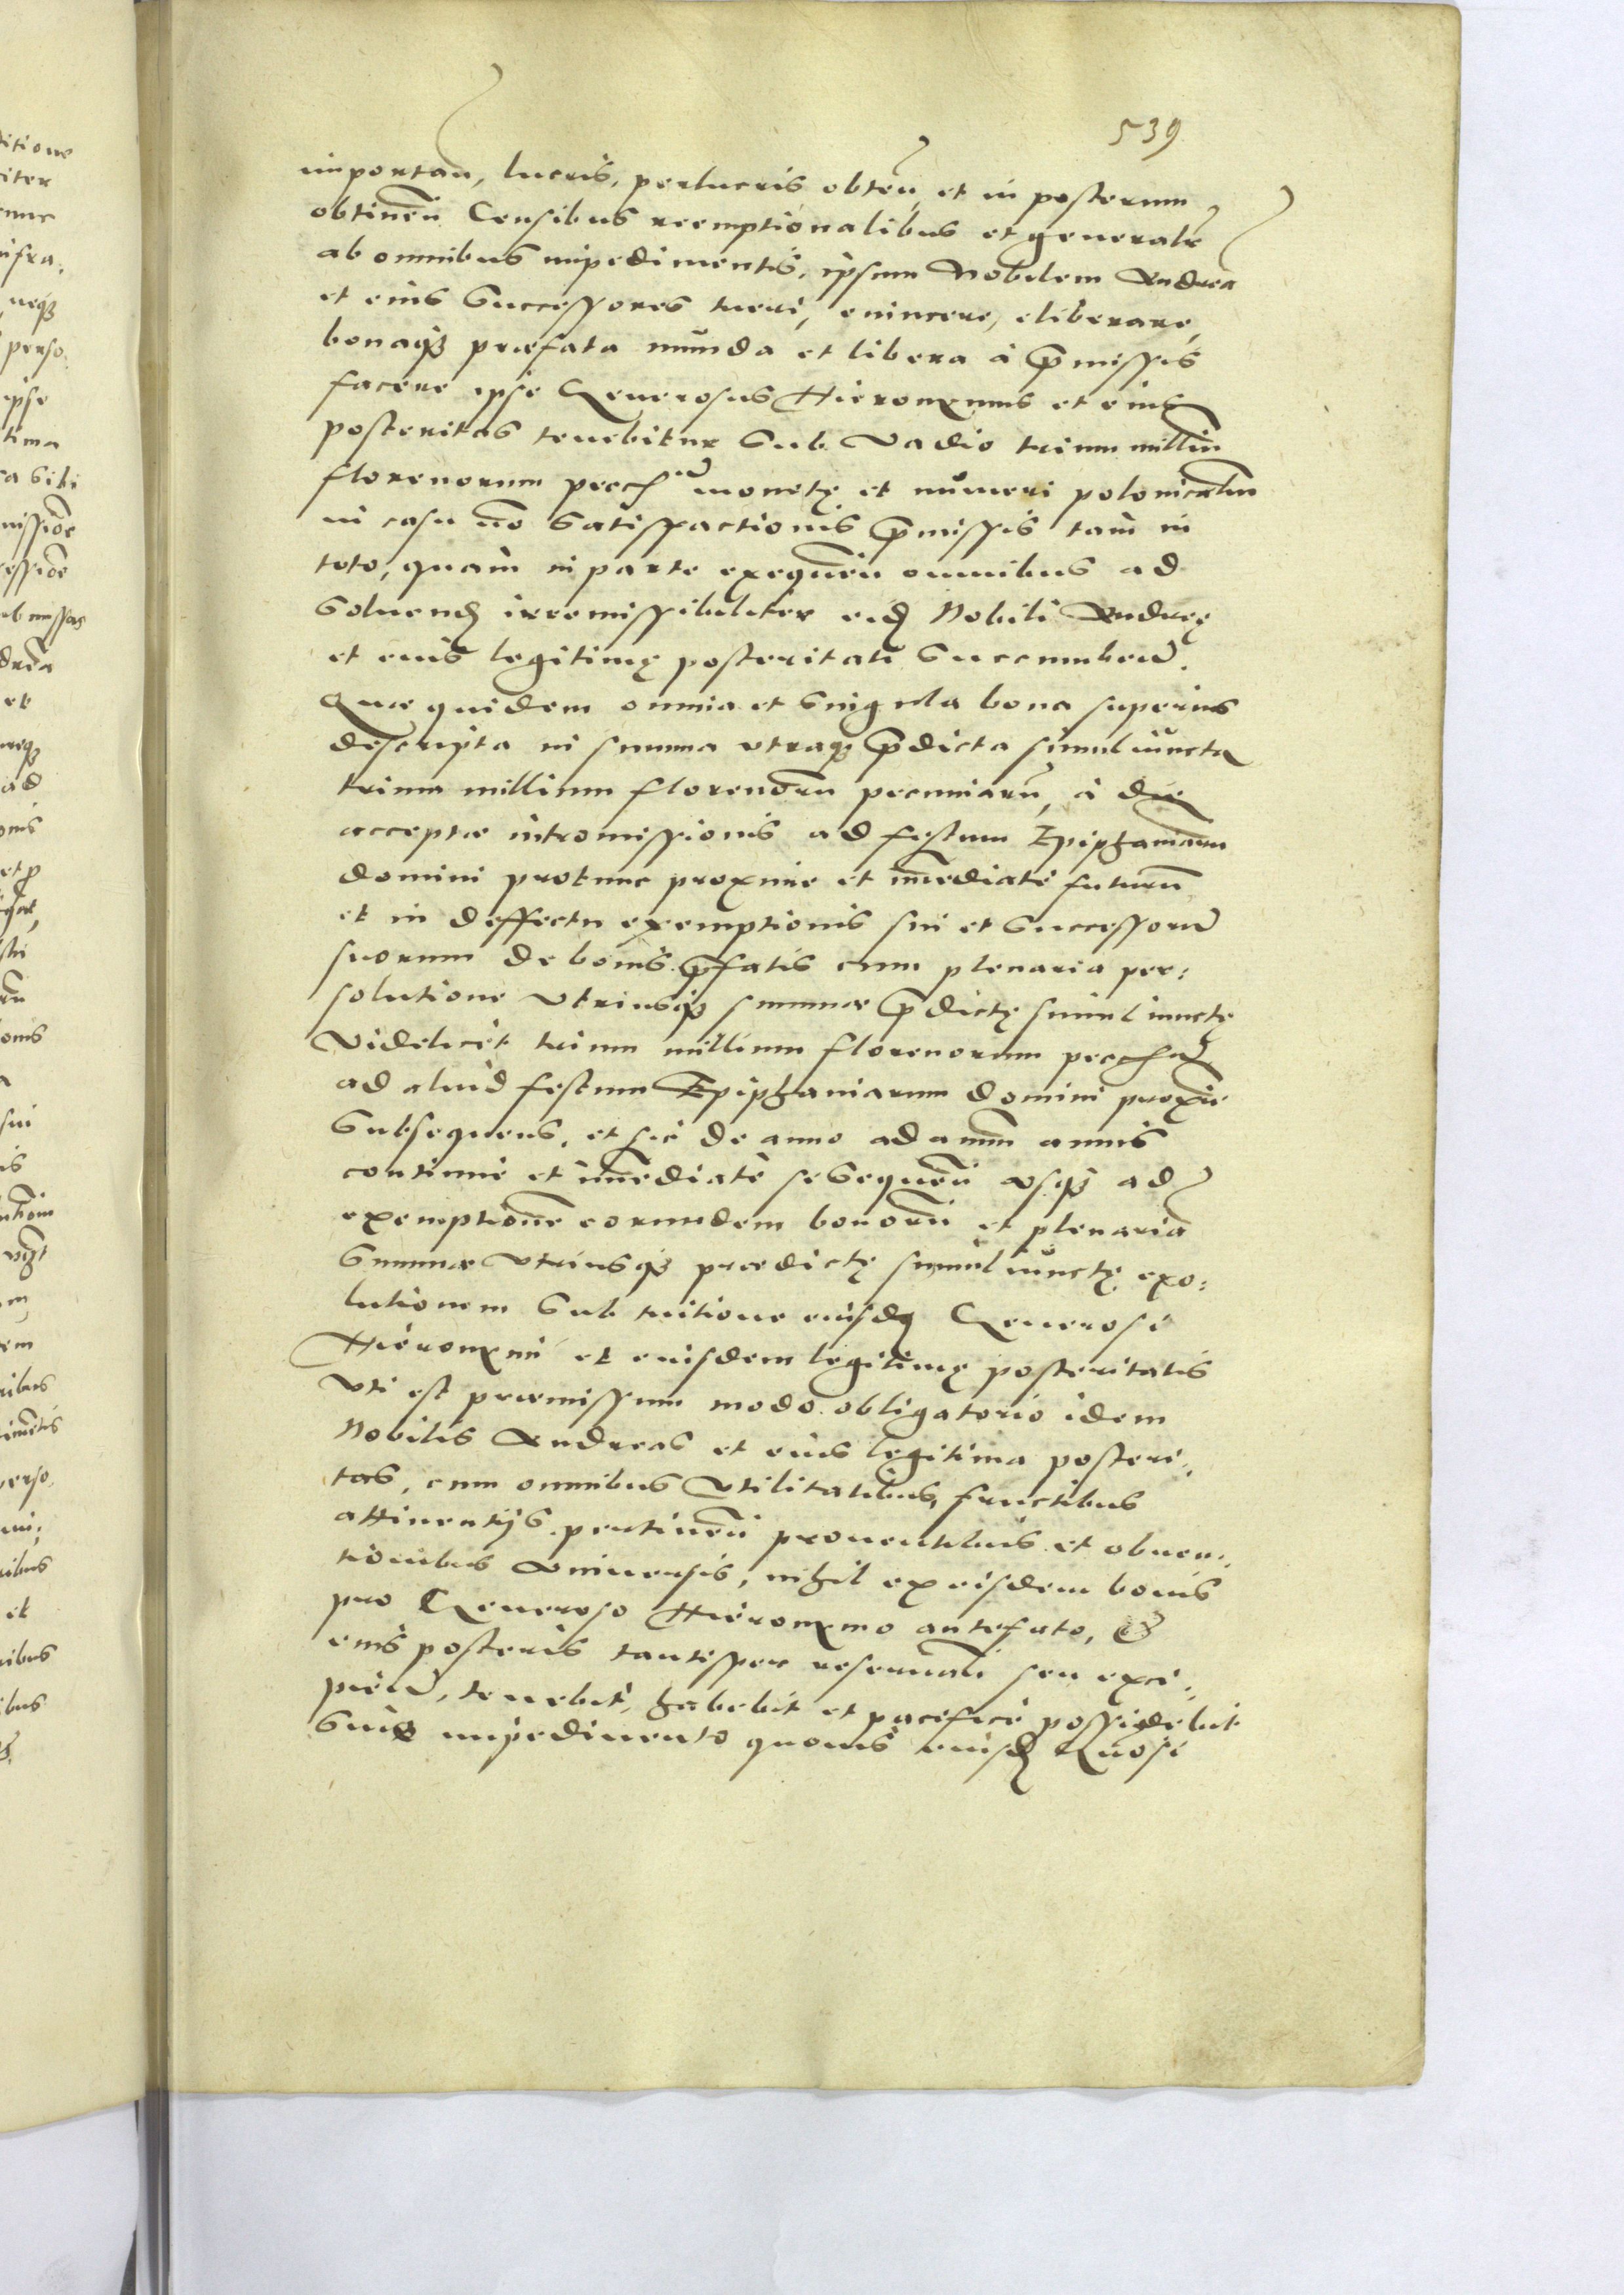 539
importan̄, lucris, perlucris obten̄, et in posterum
obtinen̄ Censibus reemptionalibus et generalr̄
ab omnibus impedimentis, ipsum Nobilem Andreā
et eius Successores tueri, evincere, eliberare,
bonaq₃ præfata munda et libera à p̄missis
facere ipse Generosus Hieronymus et eius
posteritas tenebitur sub vadio trium milliū
florenorum pecūn monetę et numeri polonicalim
in casu nō satisfactionis p̄missis tam in
toto, quàm in parte exequen̄ omnibus ad
soluend irremissibiliter eid Nobili Andreę
et eius legitimę posteritati succumbend.
Quæ quidem omnia et singula bona superius
descripta in summa vtraq₃ p̄dicta simul iuncta
trium millium florenorū pecuniarū, à die
acceptæ intromissionis ad festum Epiphaniarum
domini protunc proxime et im̄ediatè futurū
et in deffectu exemptionis sui et successorū
suorum de bonis p̄fatis cum plenaria per:
solutione vtriusq₃ summæ p̄dictę simul iunctę
Videlicet trium millium florenorum pecun
ad aliud festum Epiphaniarum domini proximè
subsequens, et sic de anno ad annū annis
continuè et im̄ediatè se sequen̄ vsq₃ ad
exemptionē eorundem bonorū et plenariā
summæ vtriusq₃ prædictę simul iunctę exo:
lutionem sub tuitione eiusd Generosi
Hieronymi et eiusdem legitimę posteritatis
vti est præmissum modo obligatorio idem
Nobilis Andreas et eius legitima posteri:
tas, cum omnibus vtilitatibus, fructibus
attinentijs pertinen̄ prouentibus et obuen:
tionibus vniuersis, nihil ex eisdem bonis
pro Generoso Hieronymo antefato, &
eius posteris tantisper reseruan̄ seu exci:
piend, tenebit, habebit et pacificè possidebit
sine impedimento quouis eiusd Gnōsi